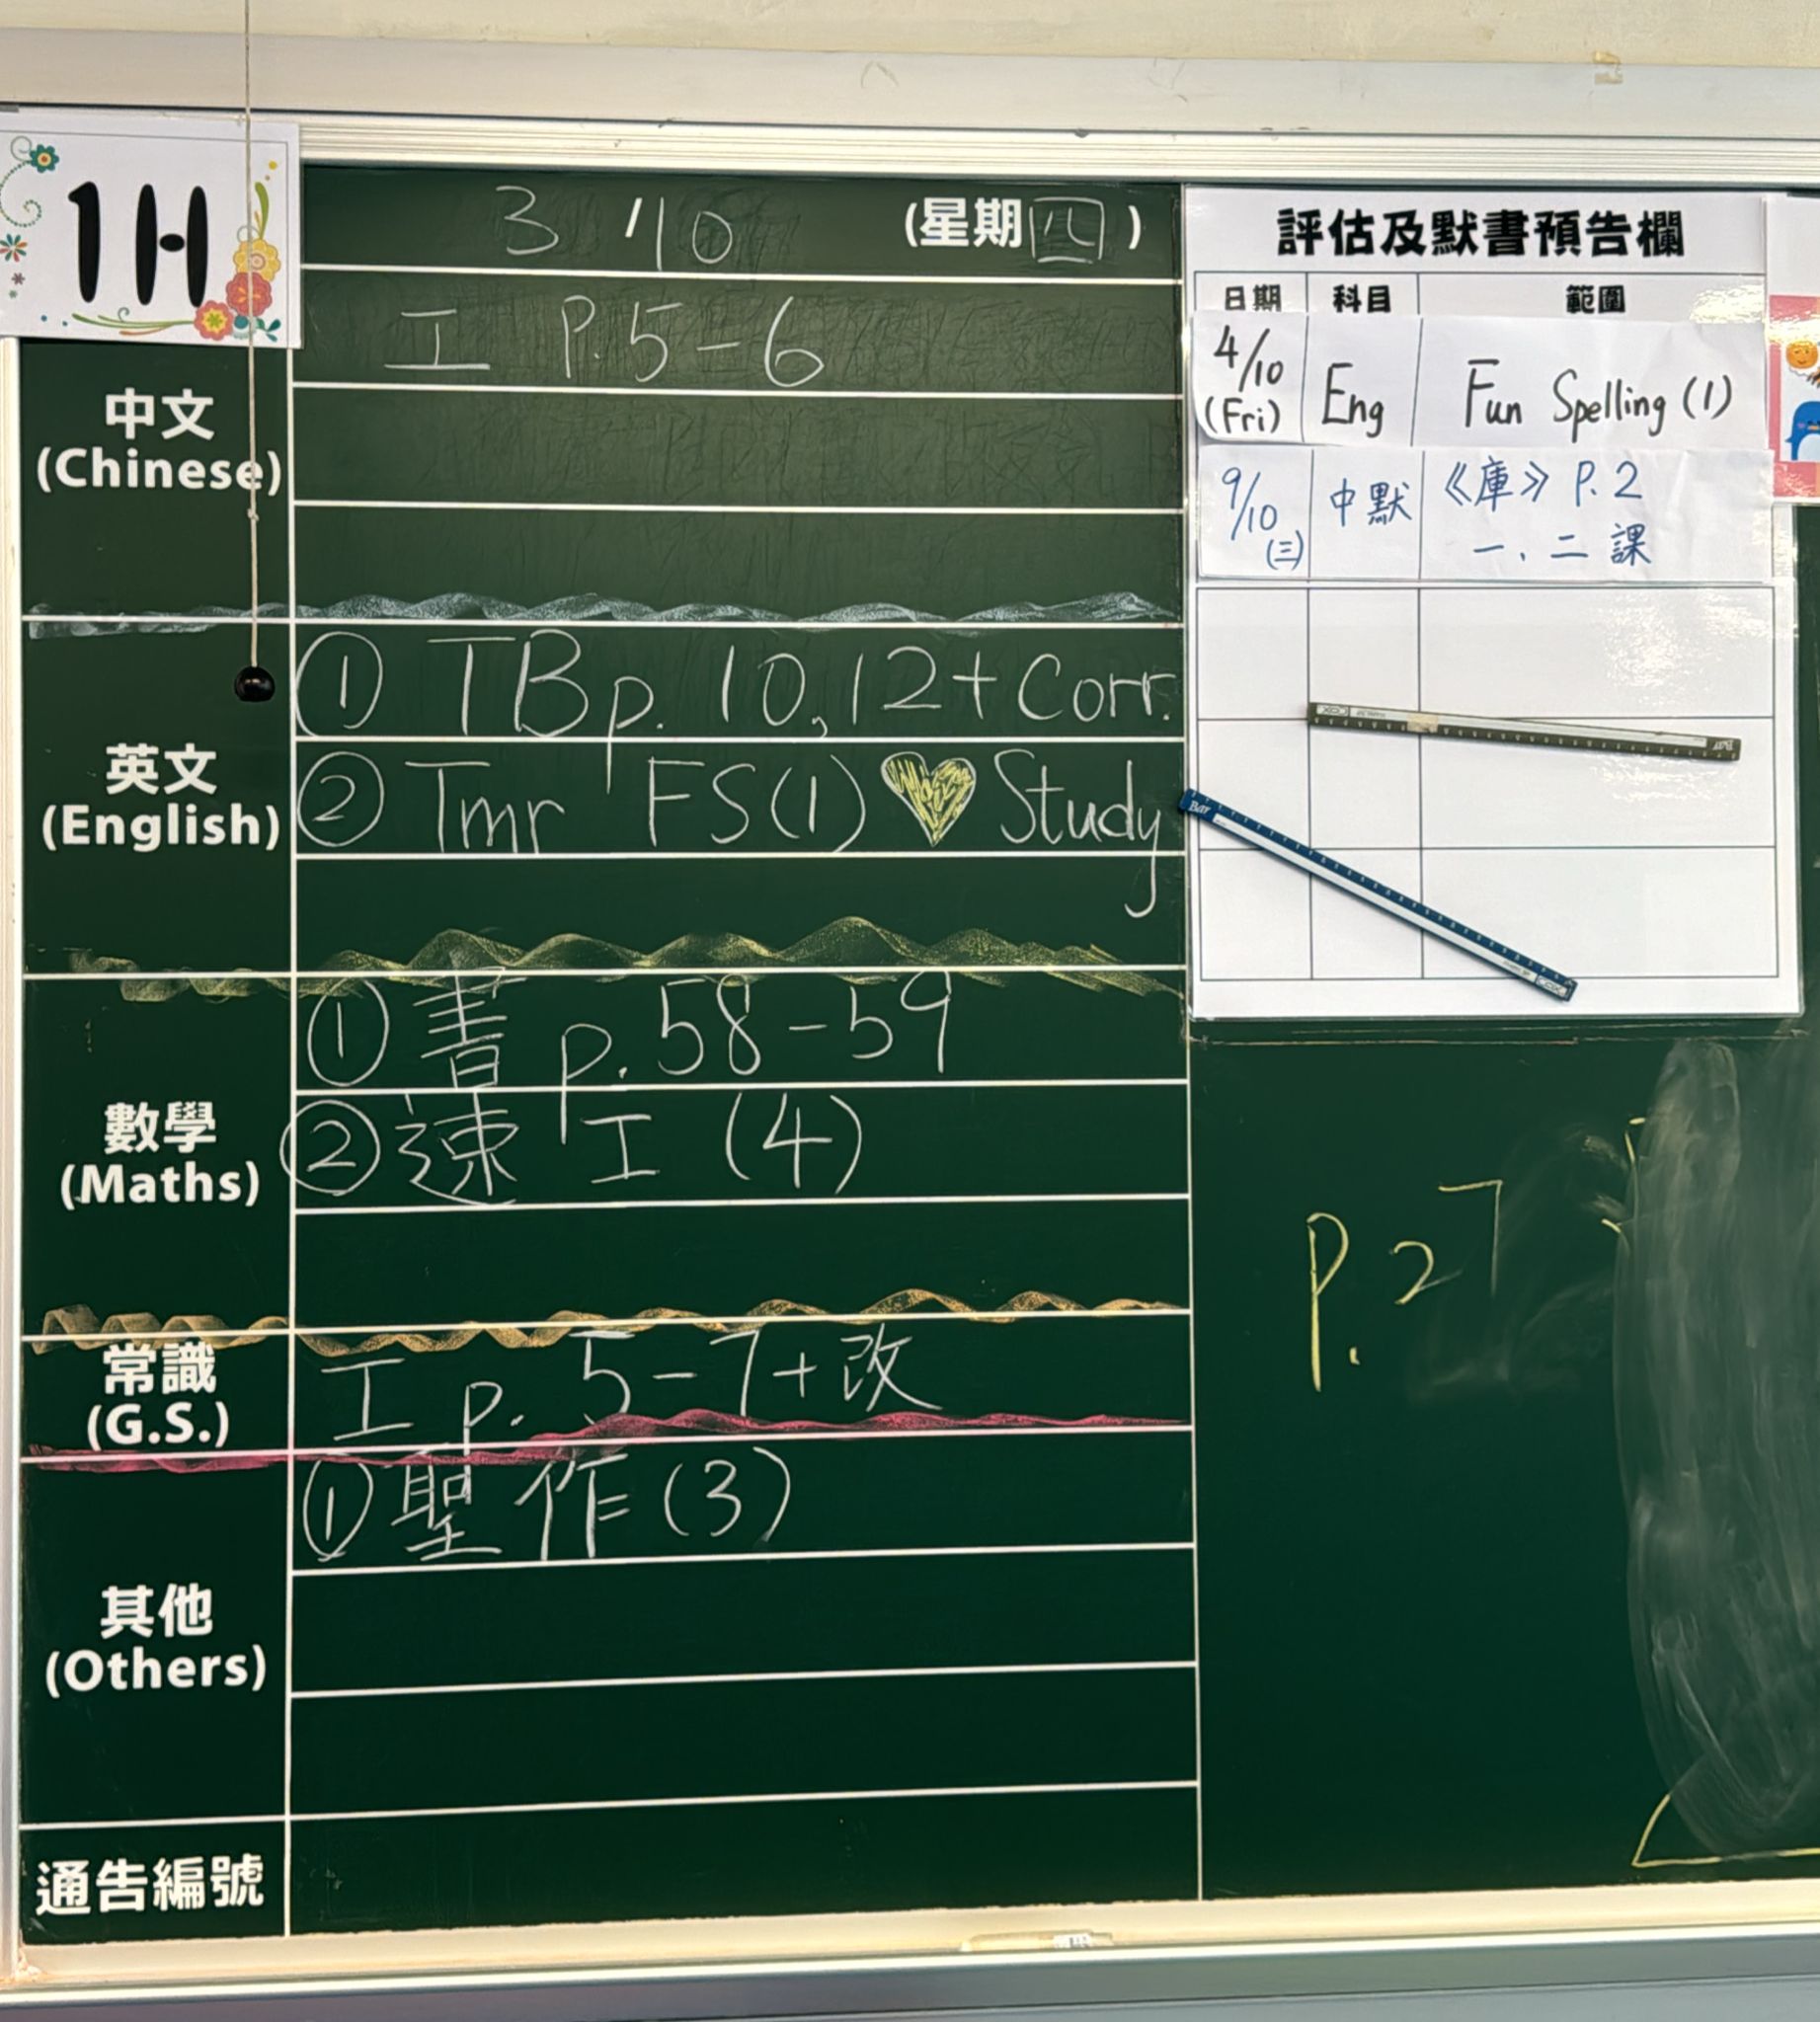 1H
3/10 (星期四)
中文
(Chinese)
工 P.5-6
英文
(English)
① TB p. 10,12+Corr.
② Tmr FS(1) Study
數學
(Maths)
① 書 p.58-59
② 速工(4)
常識
(G.S.)
工 p. 5-7+改
其他
(Others)
① 聖作(3)
通告編號
評估及默書預告欄
日期 科目 範圍
4/10 (Fri) Eng Fun Spelling (1)
9/10 (三) 中默 《庫》P.2
一、二課
P.27